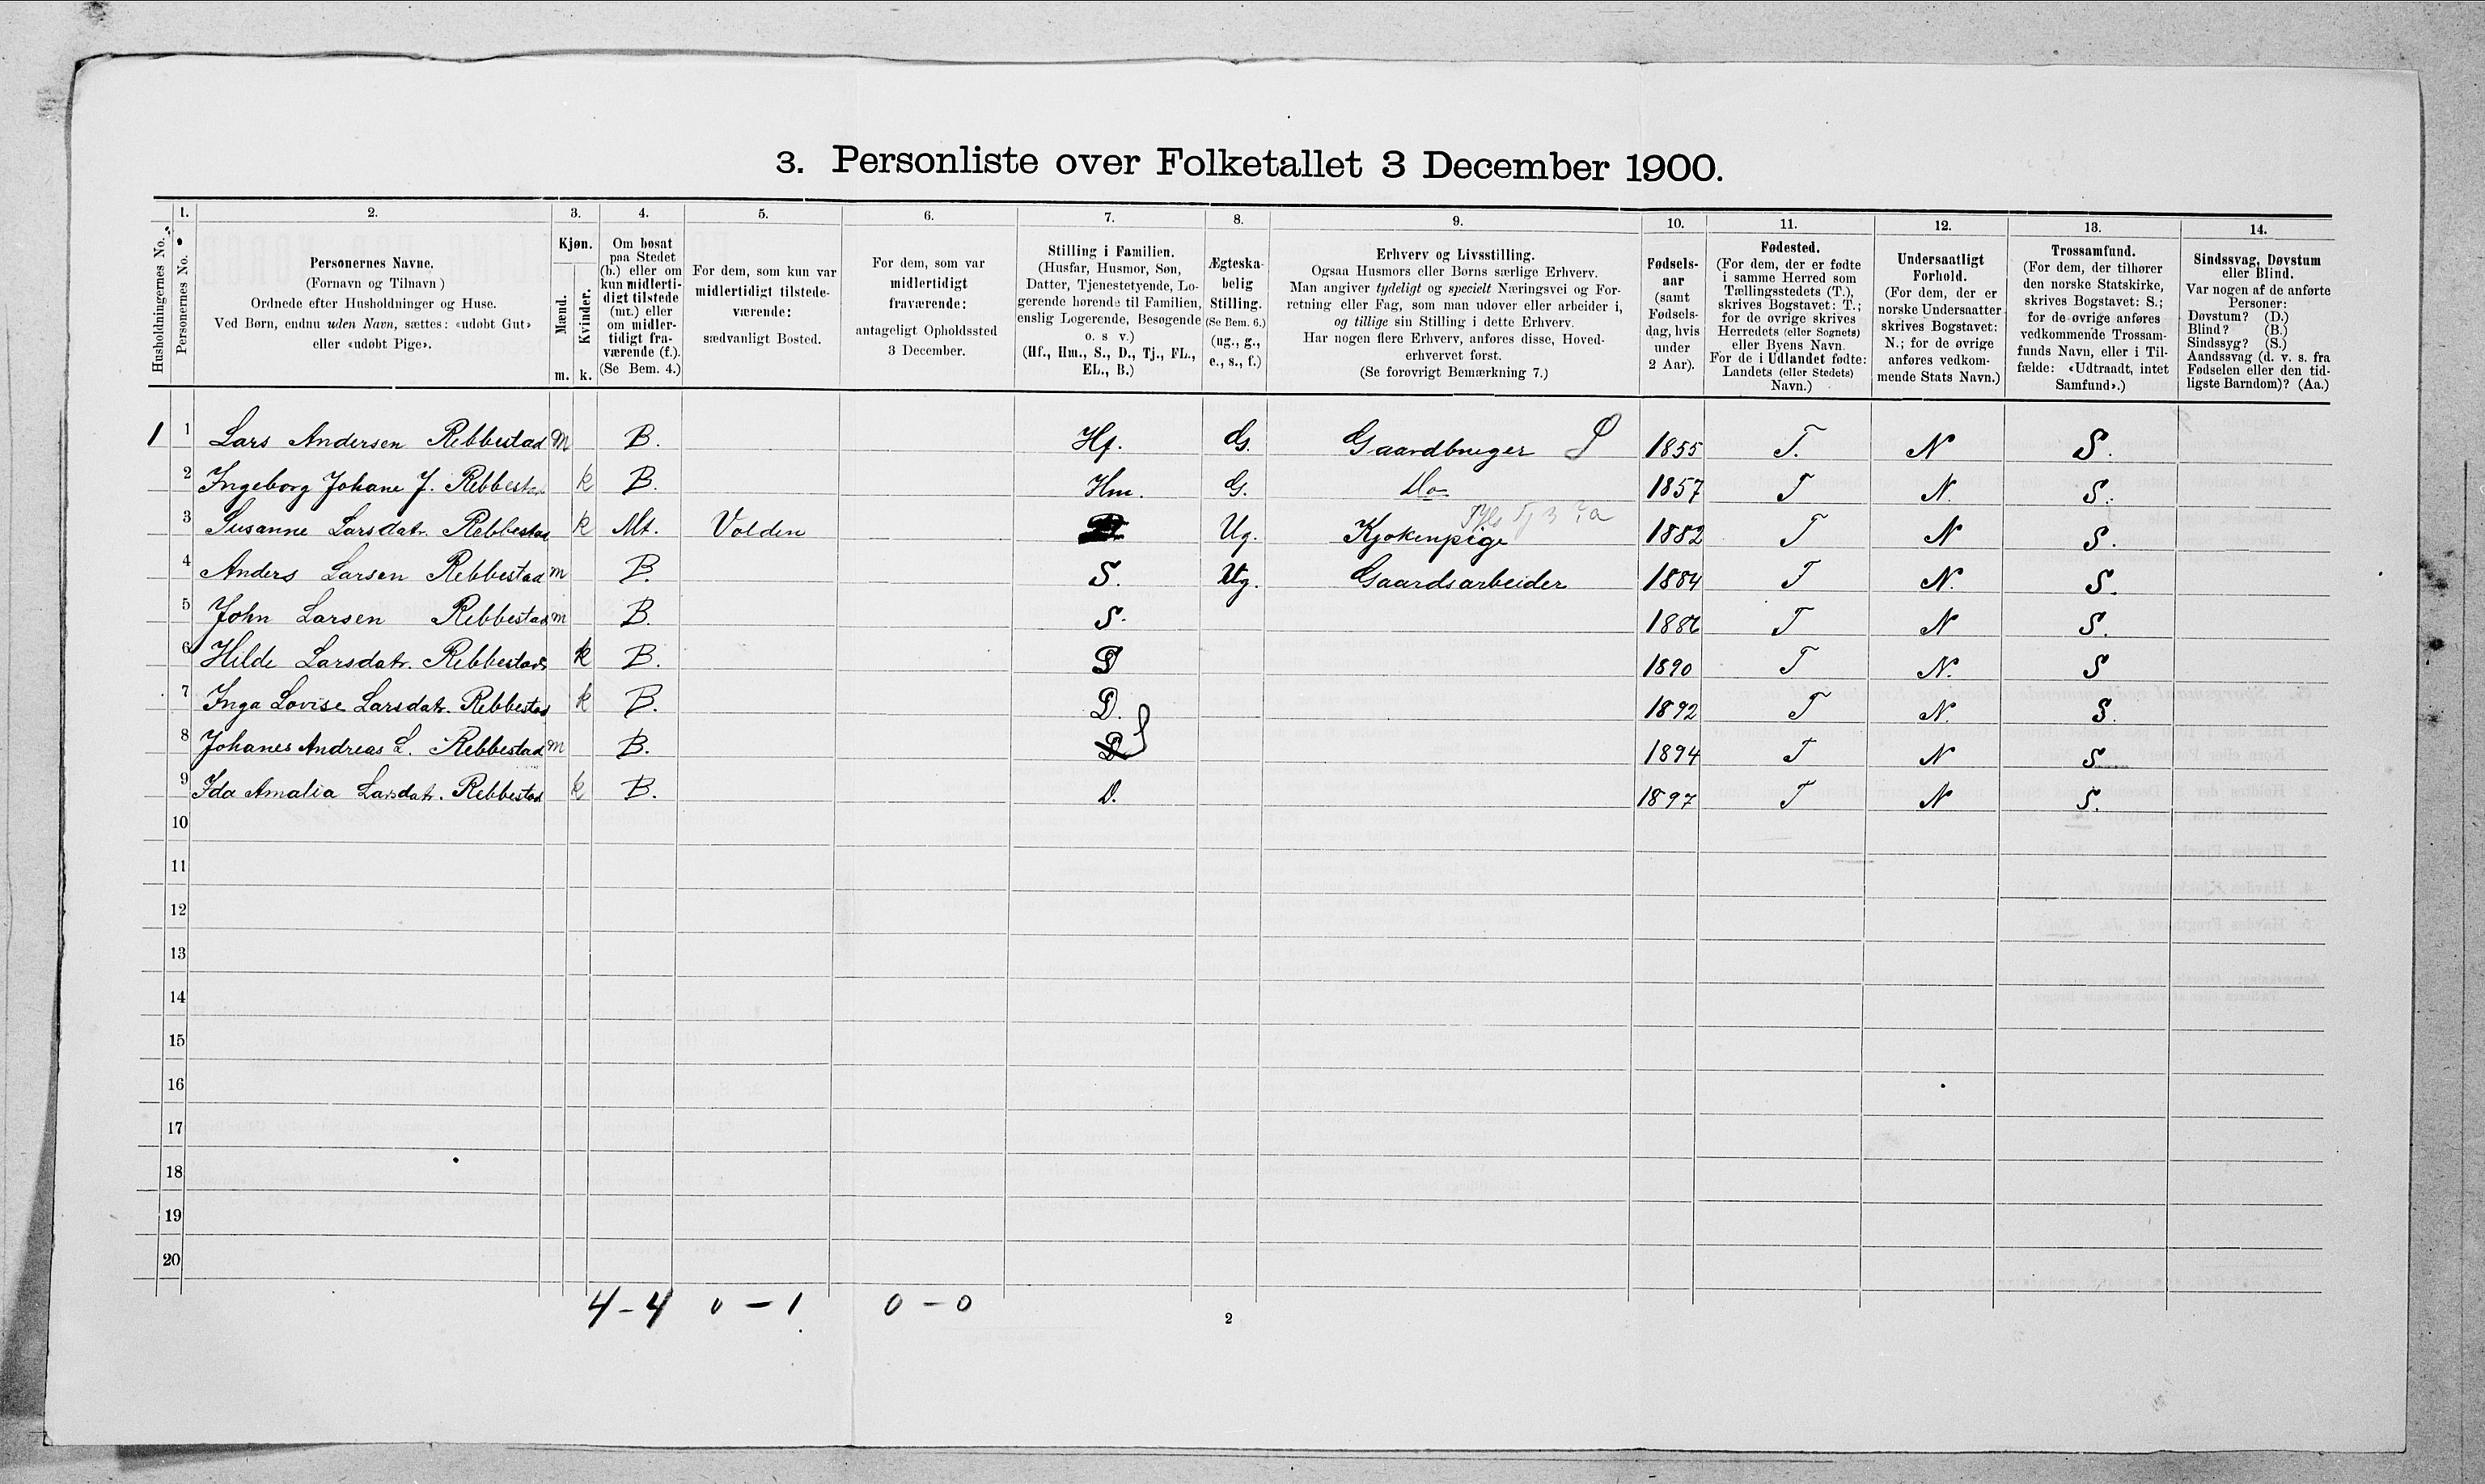 3. Personliste over Folketallet 3 December 1900.
Husholdningernes No.
1.
Personernes No.
2.
Personernes Navne.
(Fornavn og Tilnavn)
Ordnede efter Husholdninger og Huse.
Ved Børn, endnu uden Navn, sættes: «udøbt Gut»
eller «udøbt Pige».
3.
Kjøn.
Mænd.
Kvinder.
m. k.
4.
Om bosat
paa Stedet
(b.) eller om
kun midlerti-
digt tilstede
(mt.) eller
om midler-
tidigt fra-
værende (f.).
(Se Bem. 4.)
5.
For dem, som kun var
midlertidigt tilstede-
værende:
sædvanligt Bosted.
6.
For dem, som var
midlertidigt
fraværende:
antageligt Opholdssted
3 December.
7.
Stilling i Familien.
(Husfar, Husmor, Søn,
Datter, Tjenestetyende, Lo-
gerende hørende til Familien,
enslig Logerende, Besøgende
o. s v.)
(Hf., Hm., S., D., Tj., FL.,
EL., B.)
8.
Ægteska-
belig
Stilling.
(Se Bem. 6.)
(ug., g.,
e., s., f.)
9.
Erhverv og Livsstilling.
Ogsaa Husmors eller Børns særlige Erhverv.
Man angiver tydeligt og specielt Næringsvei og For-
retning eller Fag, som man udøver eller arbeider i,
og tillige sin Stilling i dette Erhverv.
Har nogen flere Erhverv, anføres disse, Hoved-
erhvervet først.
(Se forøvrigt Bemærkning 7.)
10.
Fødsels-
aar
(samt
Fødsels-
dag, hvis
under
2 Aar).
11.
Fødested.
(For dem, der er fødte
i samme Herred som
Tællingsstedets (T.),
skrives Bogstavet: T.;
for de øvrige skrives
Herredets (eller Sognets)
eller Byens Navn.
For de i Udlandet fødte:
Landets (eller Stedets)
Navn.)
12.
Undersaatligt
Forhold.
(For dem, der er
norske Undersaatter
skrives Bogstavet:
N.; for de øvrige
anføres vedkom-
mende Stats Navn.)
13.
Trossamfund.
(For dem, der tilhører
den norske Statskirke,
skrives Bogstavet: S.;
for de øvrige anføres
vedkommende Trossam-
funds Navn, eller i Til-
fælde: «Udtraadt, intet
Samfund».)
14.
Sindssvag, Døvstum
eller Blind.
Var nogen af de anførte
Personer:
Døvstum? (D.)
Blind? (B.)
Sindssyg? (S.)
Aandssvag (d. v. s. fra
Fødselen eller den tid-
ligste Barndom)? (Aa.)
1 1 Lars Andersen Rebbestad m B. Hf. G. Gaardbruger 1855 T. N S.
2 Ingeborg Johane J. Rebbestad k B. Hm. G. Do 1857 T N. S.
3 Susanne Larsdatr. Rebbestad k Mt. Volden Ug. Kjøkenpige 1882 T N S.
4 Anders Larsen Rebbestad m B. S. Ug. Gaardsarbeider 1884 T N. S.
5 John Larsen Rebbestad m B. S. T N S.
6 Hilde Larsdatr. Rebbestad k B. D 1890 T N. S
7 Inga Lovise Larsdatr. Rebbestad k B. D. 1892 T N. S.
8 Johanes Andreas L. Rebbestad m B. D S 1894 T N S
9 Ida Amalia Larsdatr. Rebbestad k B. D. 1897 T N S.
10
11
12
13
14
15
16
17
18
19
20
4-4 0-1 0-0
2